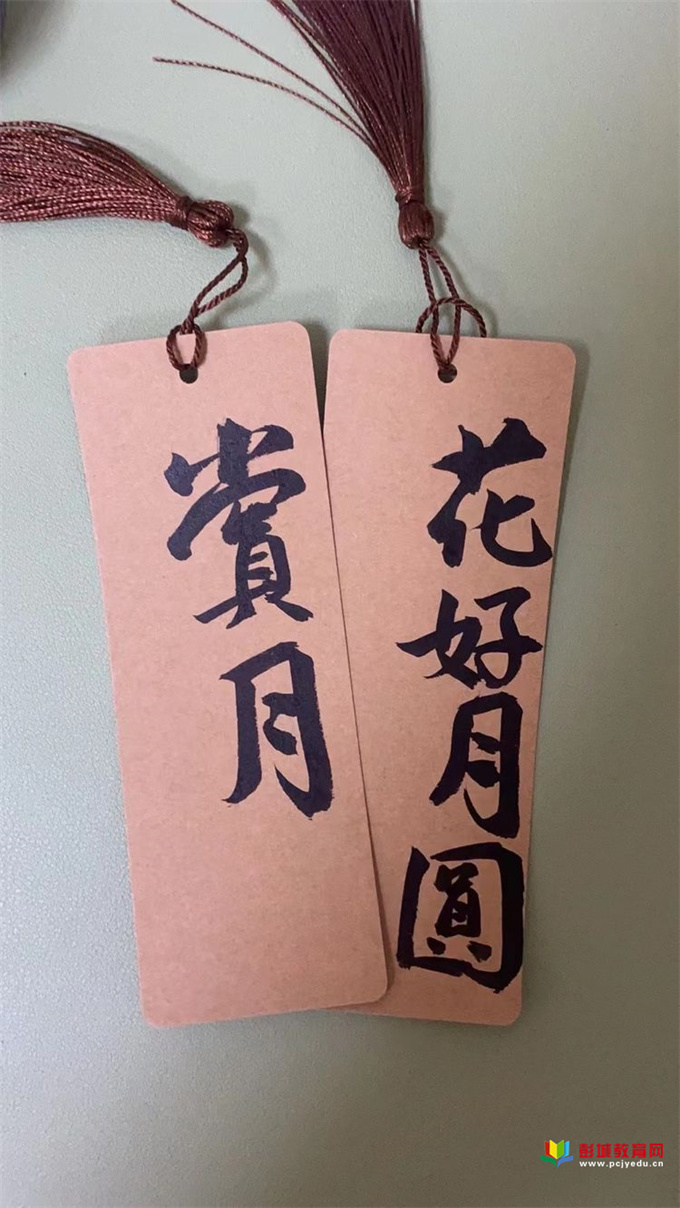 賞月
花好月圓
彭城教育网
www.pcjyedu.cn